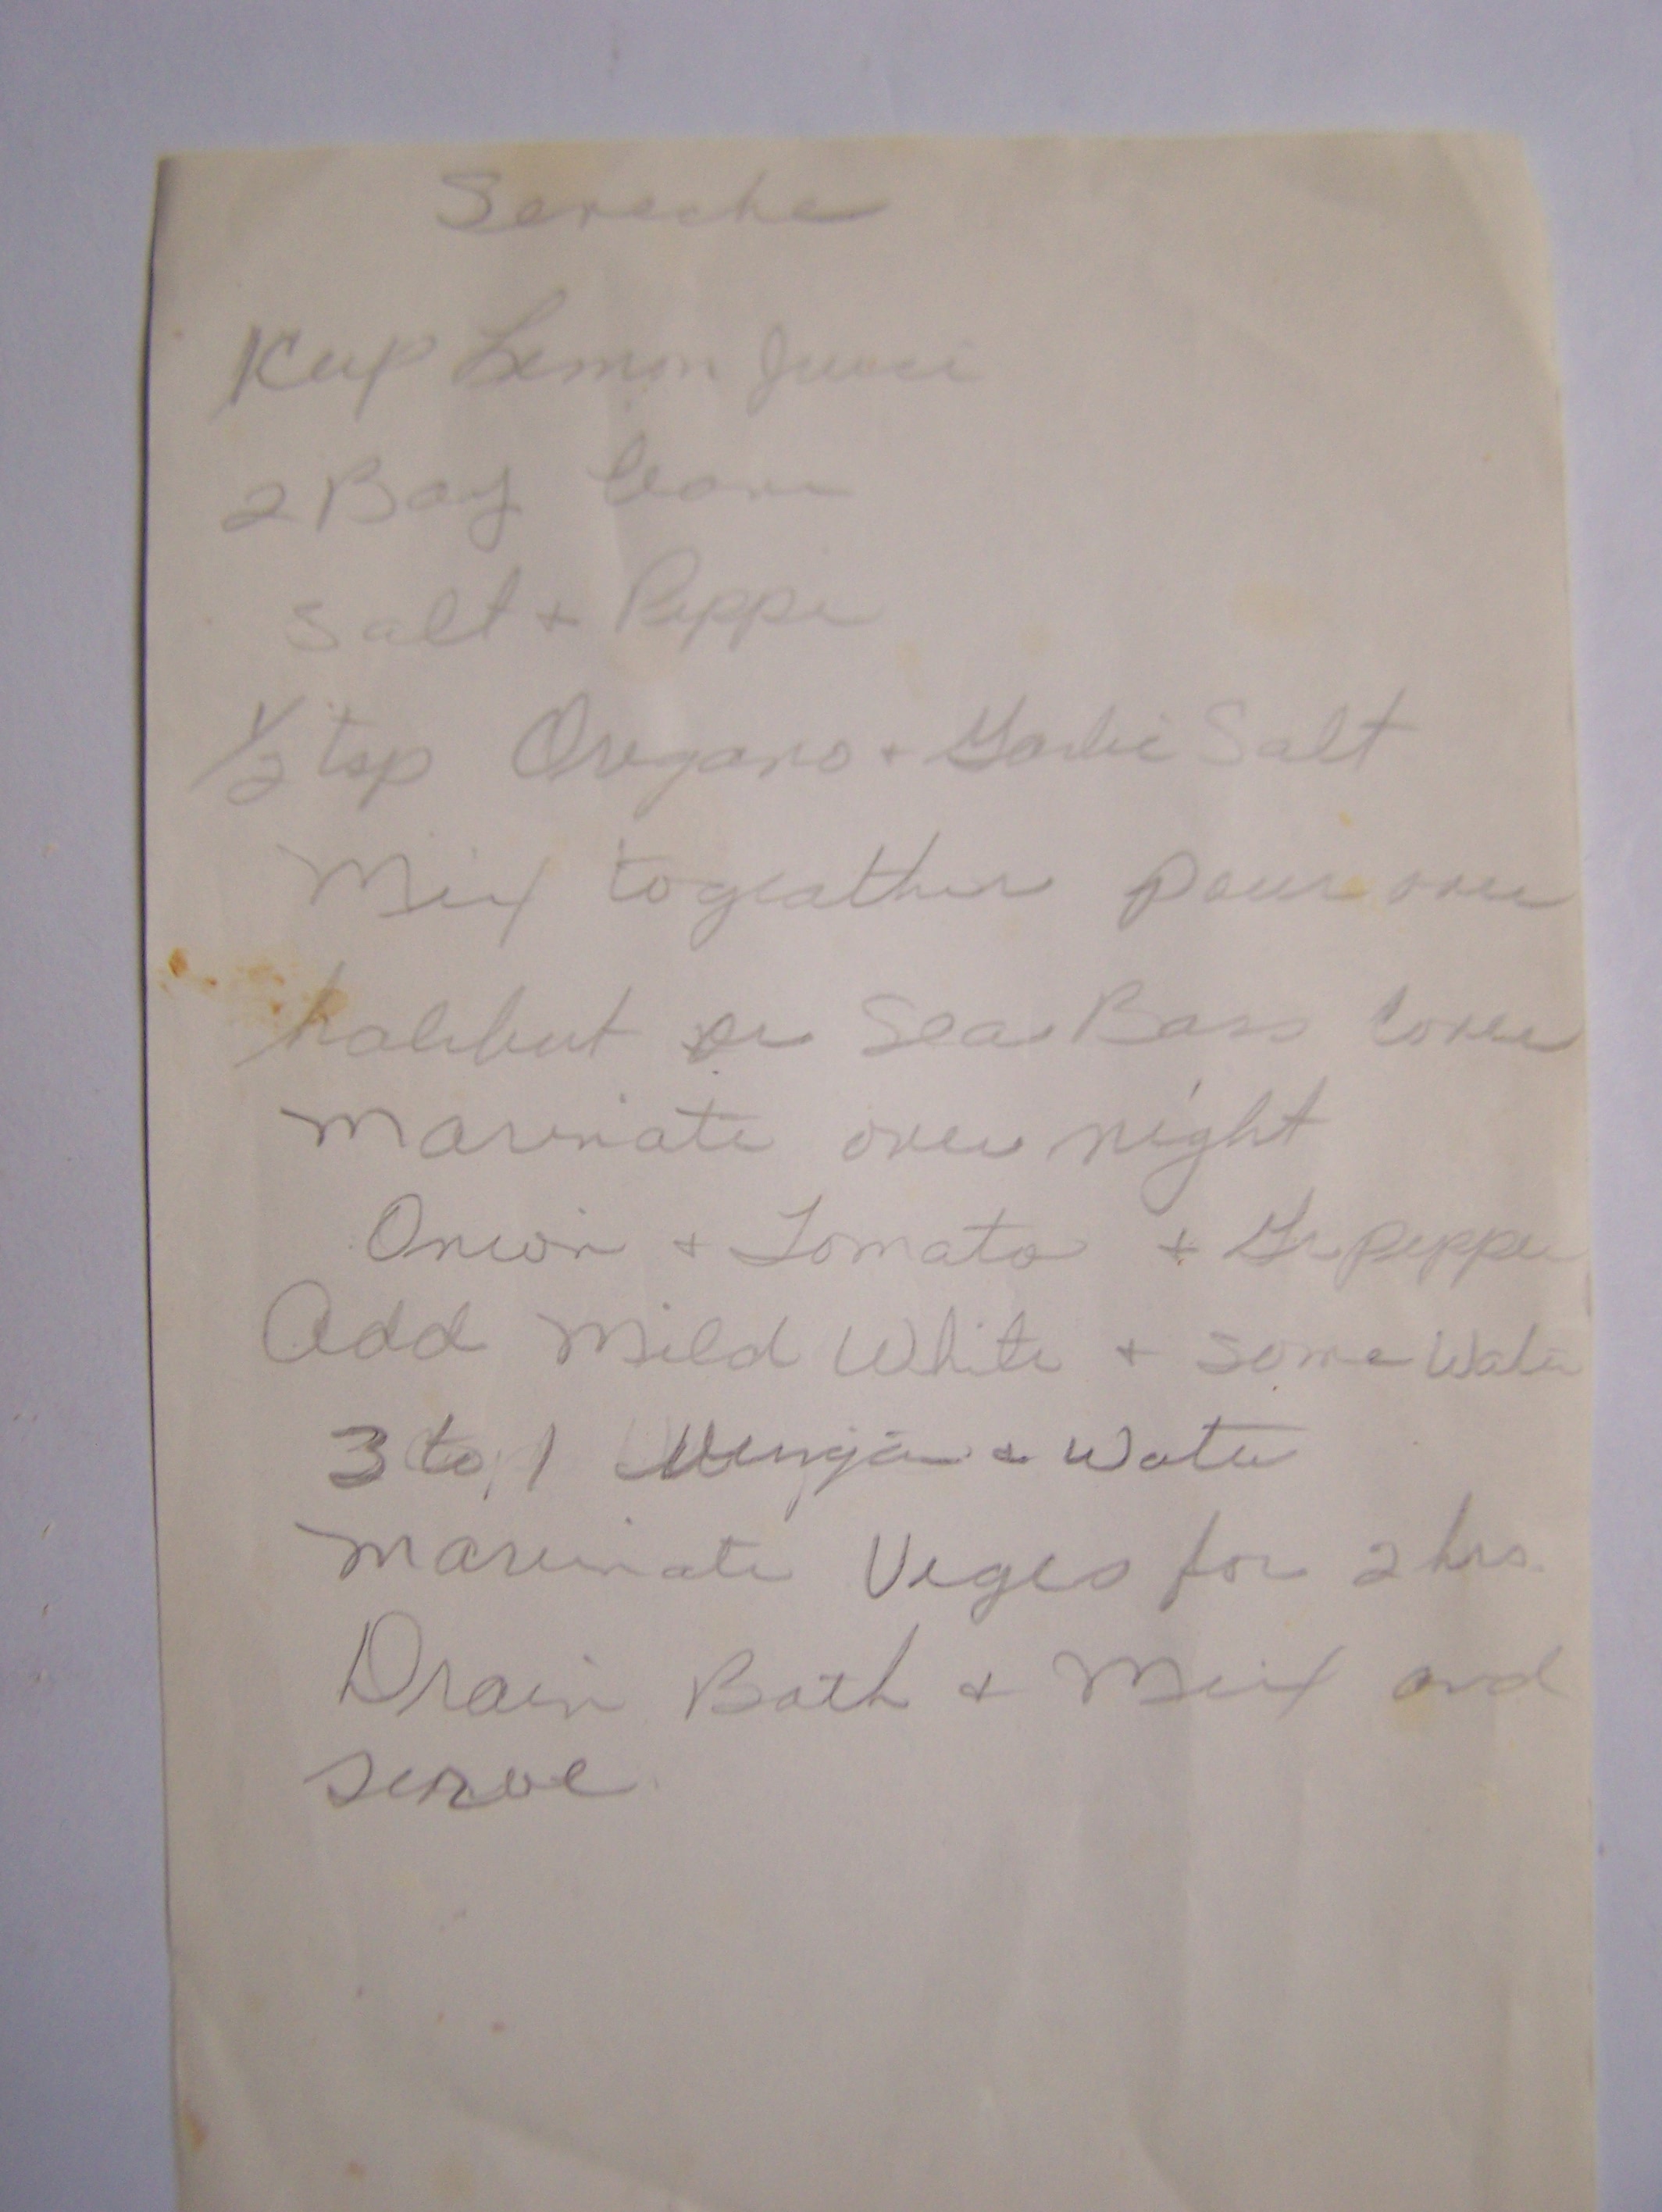 Seveche
1 Cup Lemon Juice
2 Bay leave
Salt + Pepper
1/2 tsp Oregano + Garlic Salt
Mix togeather pour over
halibut or Sea Bass Cover
Marinate over night
Onion + Tomato + Gr pepper
Add Mild White + some Water
3 to 1 + Water
Marinate Veges for 2 hrs.
Drain Both + Mix and
serve